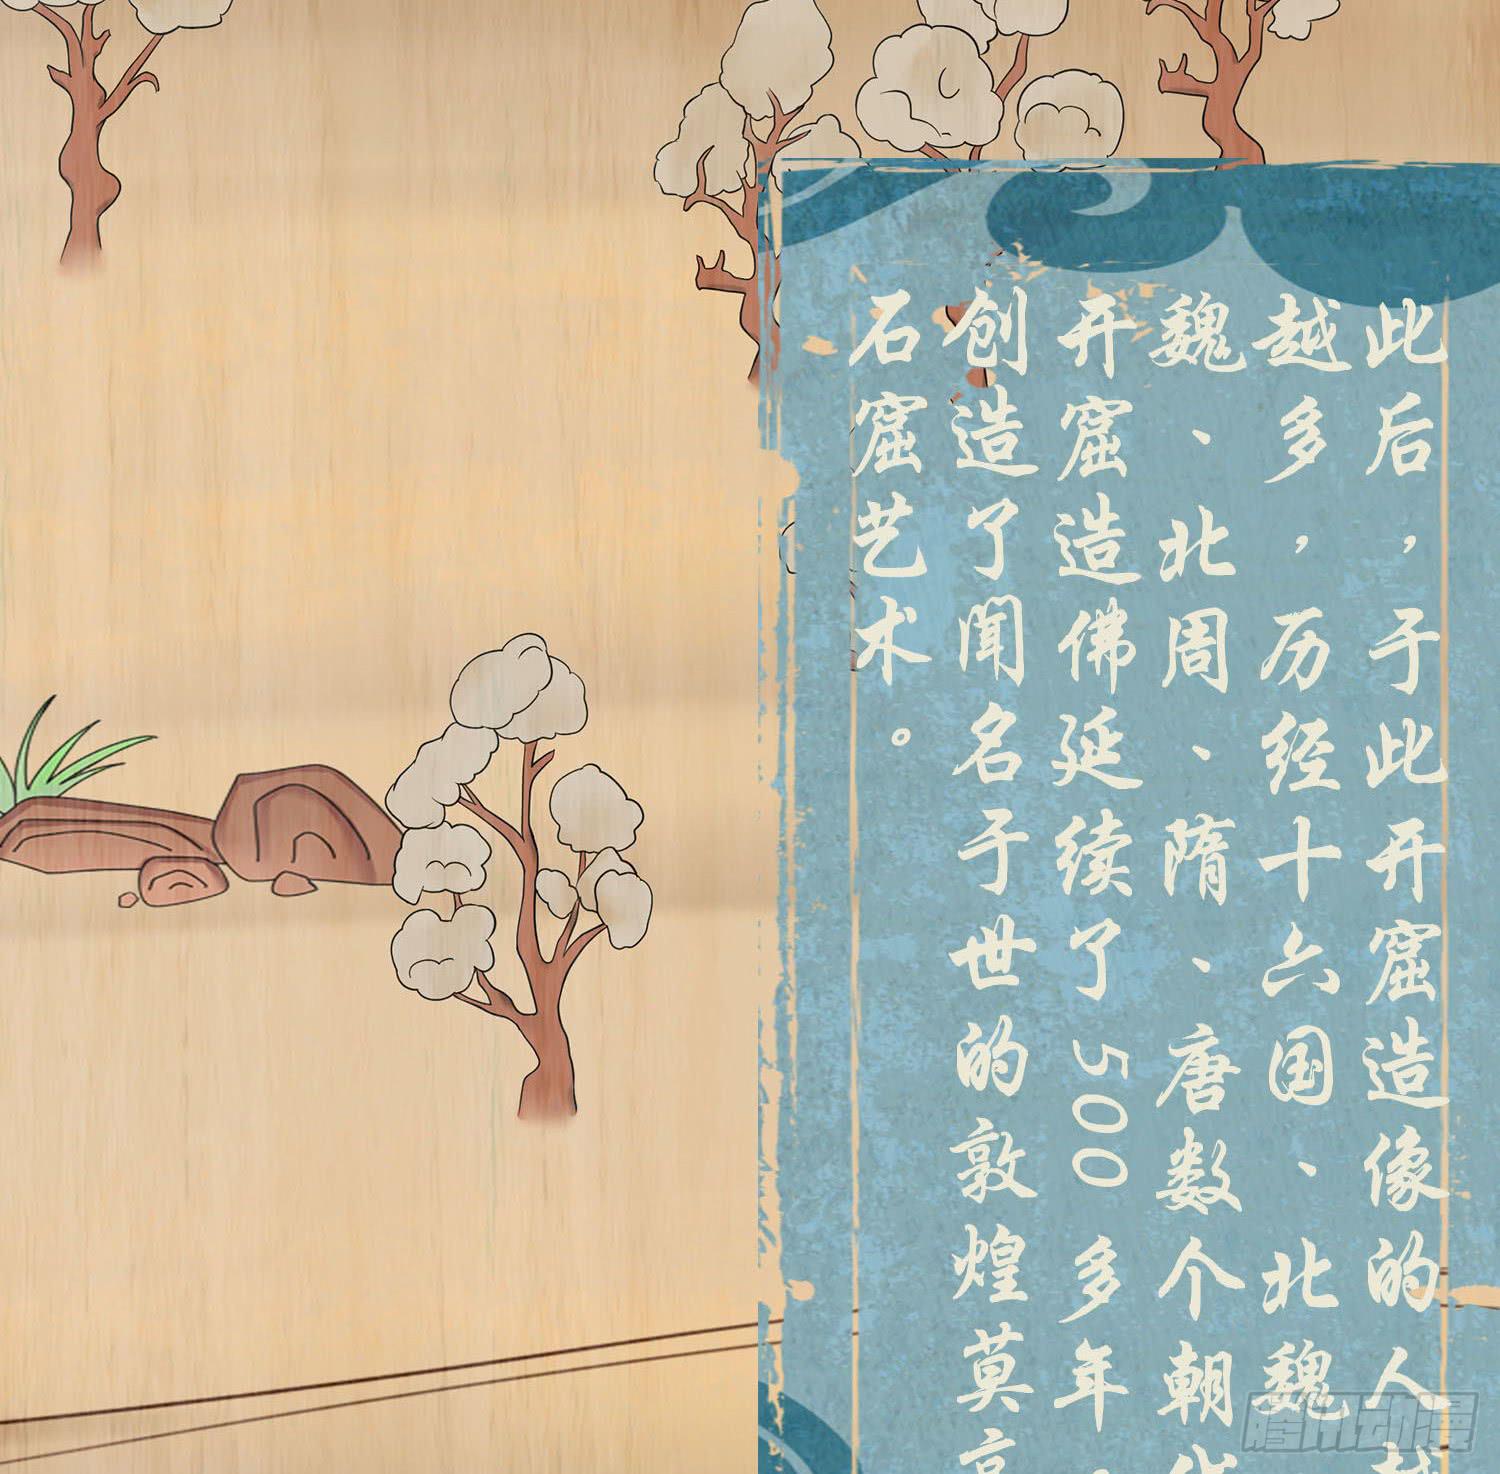 此后，于此开窟造像的人越
越多，历经十六国、北魏
魏、北周、隋、唐数个朝代
开窟造佛延续了500多年，
创造了闻名于世的敦煌莫高
石窟艺术。
腾讯动漫